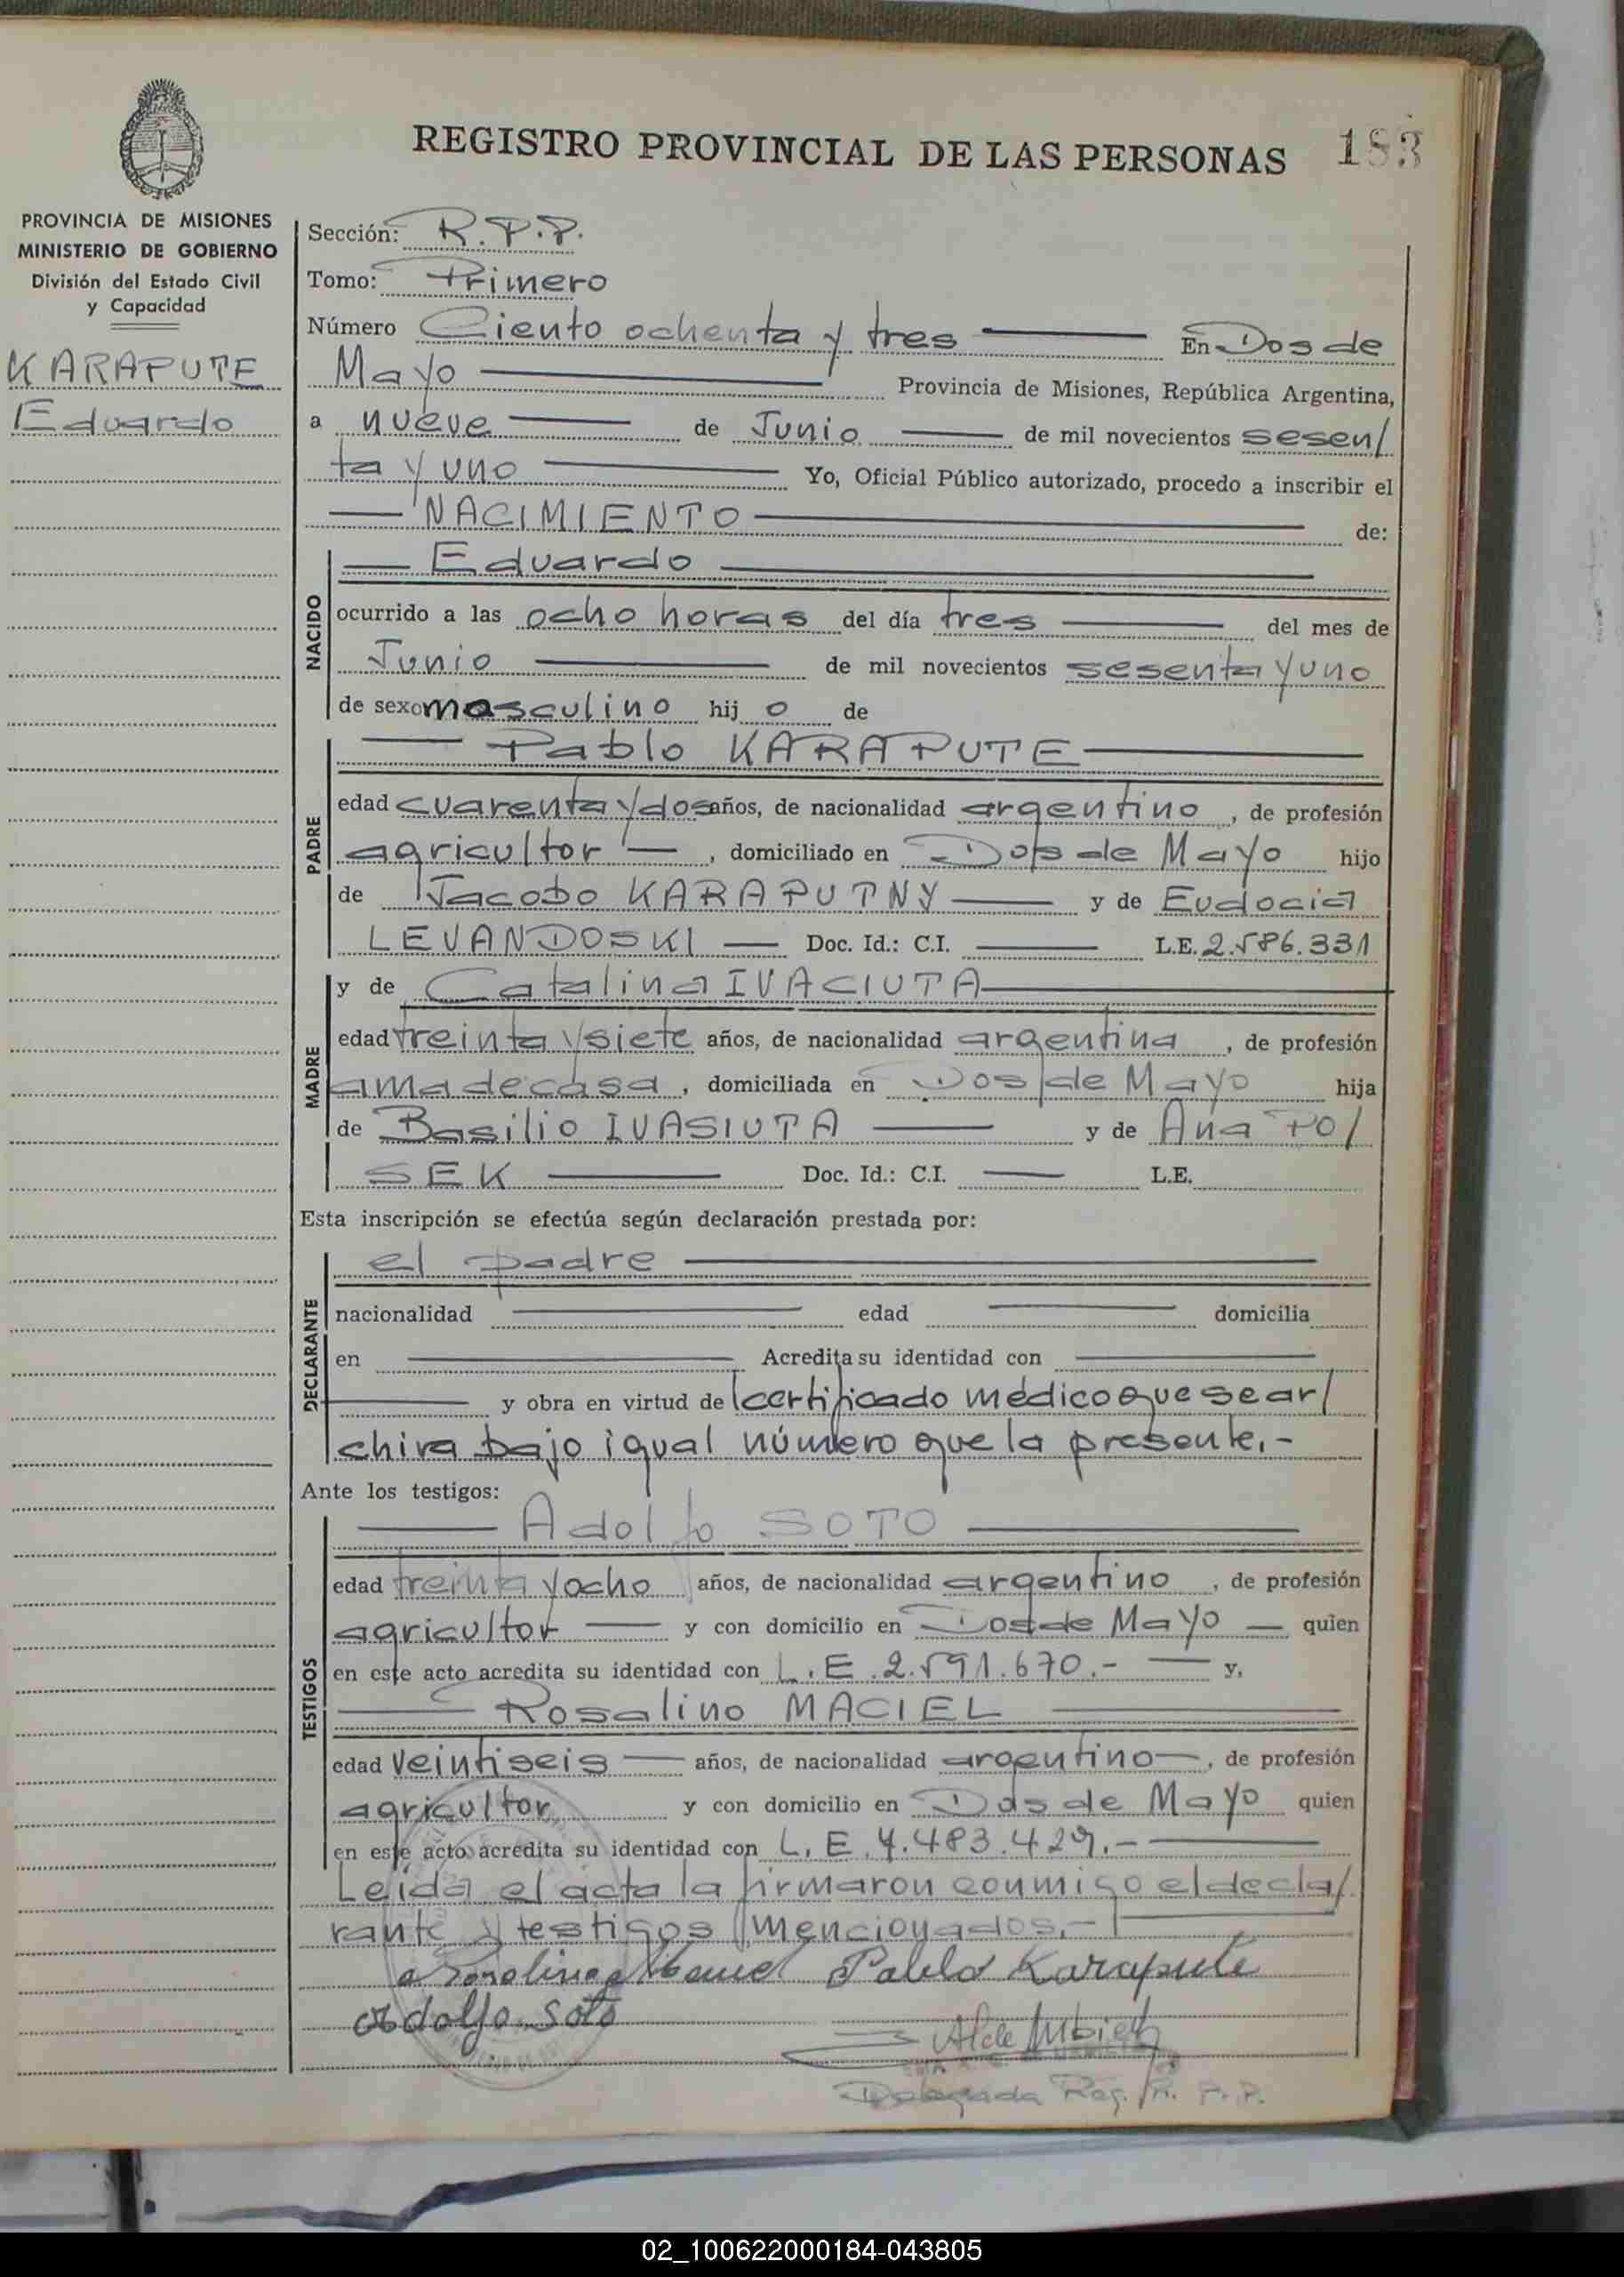 REGISTRO PROVINCIAL DE LAS PERSONAS 183
PROVINCIA DE MISIONES
MINISTERIO DE GOBIERNO
División del Estado Civil
y Capacidad
KARAPUTE
Eduardo
Sección: R.P.P.
Tomo: Primero
Número Ciento ochenta y tres En Dos de
Mayo Provincia de Misiones, República Argentina,
a nueve de Junio de mil novecientos sesen/
ta y uno Yo, Oficial Público autorizado, procedo a inscribir el
NACIMIENTO de:
NACIDO
Eduardo
ocurrido a las ocho horas del día tres del mes de
Junio de mil novecientos sesenta y uno
de sexo masculino hij o de
PADRE
Pablo KARAPUTE
edad cuarenta y dos años, de nacionalidad argentino, de profesión
agricultor, domiciliado en Dos de Mayo hijo
de Jacobo KARAPUTNY y de Eudocia
LEVANDOSKI Doc. Id.: C.I. L.E. 2.586.331
MADRE
y de Catalina IVACIUTA
edad treinta y siete años, de nacionalidad argentina, de profesión
ama de casa, domiciliada en Dos de Mayo hija
de Basilio IVASIUTA y de Ana PO/
SEK Doc. Id.: C.I. L.E.
Esta inscripción se efectúa según declaración prestada por:
DECLARANTE
el padre
nacionalidad edad domicilia
en Acredita su identidad con
y obra en virtud de certificado médico que se ar/
chiva bajo igual número que la presente.-
Ante los testigos:
TESTIGOS
Adolfo SOTO
edad treinta y ocho años, de nacionalidad argentino, de profesión
agricultor y con domicilio en Dos de Mayo quien
en este acto acredita su identidad con L.E. 2.591.670.- y,
Rosalino MACIEL
edad veintiseis años, de nacionalidad argentino, de profesión
agricultor y con domicilio en Dos de Mayo quien
en este acto acredita su identidad con L.E. 7.483.429.-
Leida el acta la firmaron conmigo el decla/
rante y testigos mencionados.-
Pablo Karapute
Adolfo Soto
Delegada Reg. P. P.
02_100622000184-043805